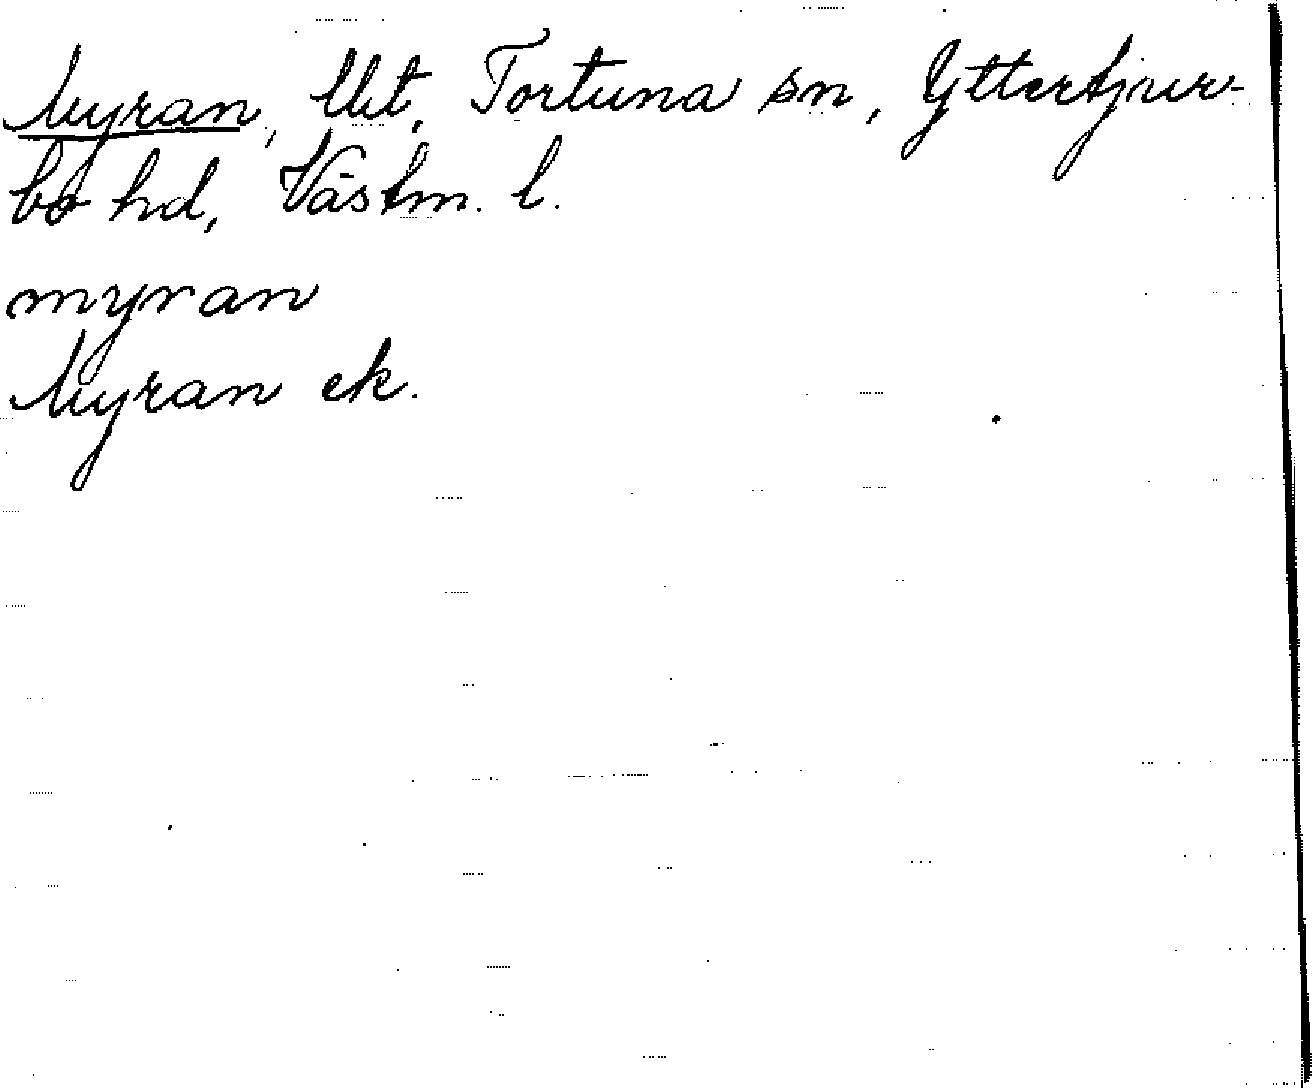 Myran, Utt, Tortuna sn, Yttertjur-
bo hd, Västm. l.
myran
Myran ek.